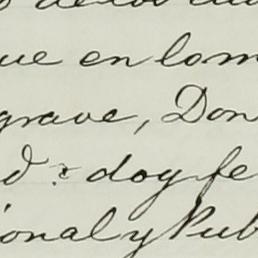 ue en lom
grave, Don
d: doy fe
ional y Pub